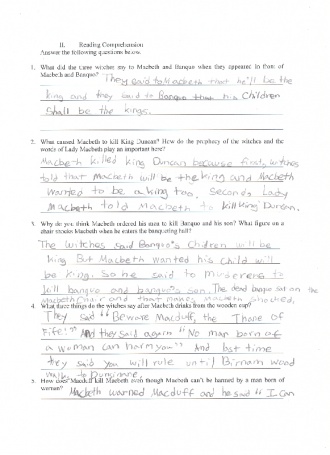 II. Reading Comprehension
Answer the following questions below.
1. What did the three witches say to Macbeth and Banquo when they appeared in front of
Macbeth and Banquo? They said to Macbeth that he'll be the
king and they said to Banquo that his Children
Shall be the kings.
2. What caused Macbeth to kill King Duncan? How do the prophecy of the witches and the
words of Lady Macbeth play an important here?
Macbeth killed king Duncan because first, witches
told that Macbeth will be the king and Macbeth
wanted to be a king too. Second, Lady
Macbeth told Macbeth to kill King Duncan.
3. Why do you think Macbeth ordered his men to kill Banquo and his son? What figure on a
chair shocks Macbeth when he enters the banqueting hall?
The witches said Banquo's Chidren will be
king But Macbeth wanted his Child will
be king. So he said to murderers to
kill banquo and banquo's son. The dead banquo sat on the
macbeth chair and that makes Macbeth shocked.
4. What three things do the witches say after Macbeth drinks from the wooden cup?
They said "Beware Macduff, the Thane of
Fife!" And they said again "No man born of
a woman can harm you" And last time
they said you will rule until Birnam wood
walks to Dunsinane.
5. How does Macduff kill Macbeth even though Macbeth can't be harmed by a man born of
woman? Macbeth warned Macduff and he said "I Can